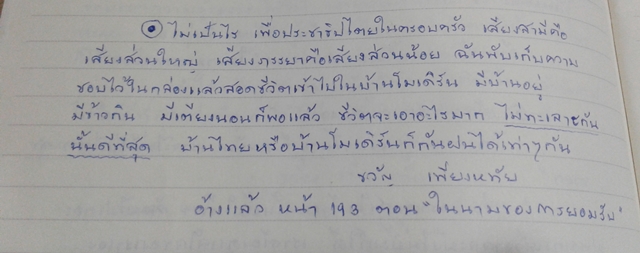 ไม่เป็นไร เพื่อประชาธิปไตยในครอบครัว เสียงสามีคือ
เสียงส่วนใหญ่ เสียงภรรยาคือเสียงส่วนน้อย ฉันพับเก็บความ
ชอบไว้ในกล่องแล้วสอดชีวิตเข้าไปในบ้านโมเดิร์น มีบ้านอยู่
มีข้าวกิน มีเตียงนอนก็พอแล้ว ชีวิตจะเอาอะไรมาก ไม่ทะเลาะกัน
นั้นดีที่สุด บ้านไทยหรือบ้านโมเดิร์นก็กันฝนได้เท่าๆกัน
ขวัญ เพียงหทัย
อ้างแล้ว หน้า 193 ตอน "ในนามของการยอมรับ"